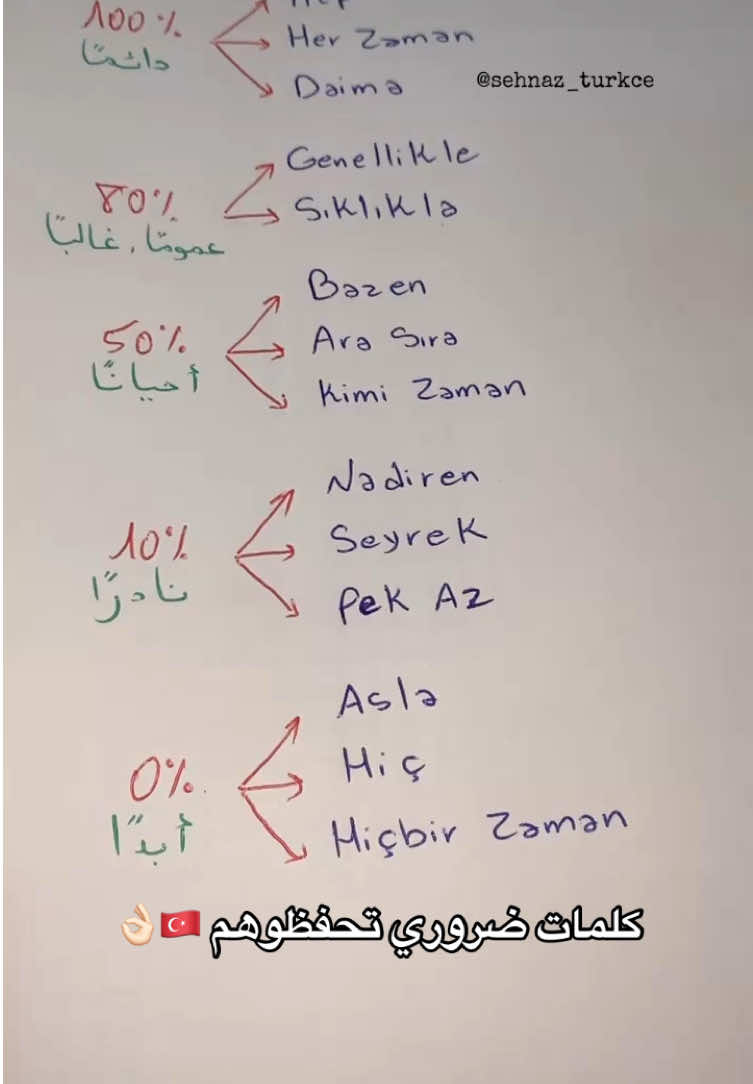 100%
دائمًا
Her Zaman
Daima
@sehnaz_turkce
80%
عمومًا، غالبًا
Genellikle
Sıklıkla
50%
أحيانًا
Bazen
Ara Sıra
Kimi Zaman
10%
نادرًا
Nadiren
Seyrek
Pek Az
0%
أبدًا
Asla
Hiç
Hiçbir Zaman
كلمات ضروري تحفظوهم 🇹🇷👌🏻